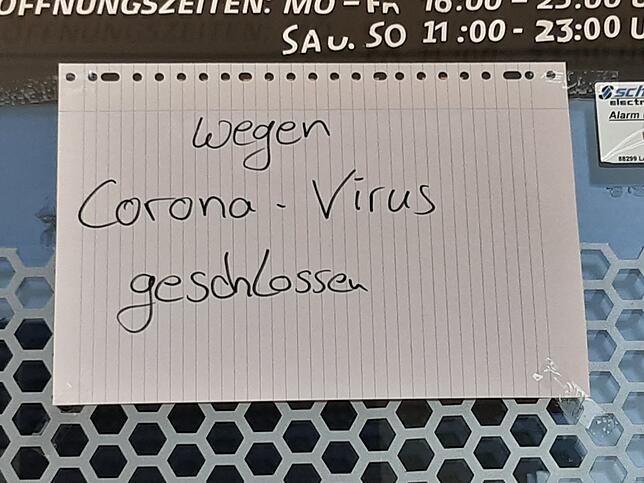 ÖFFNUNGSZEITEN: MO – FR 16:00 - 23:00 U
SA u. SO 11:00 - 23:00 U
wegen
Corona - Virus
geschlossen
sch
electr
Alarm
88299 L